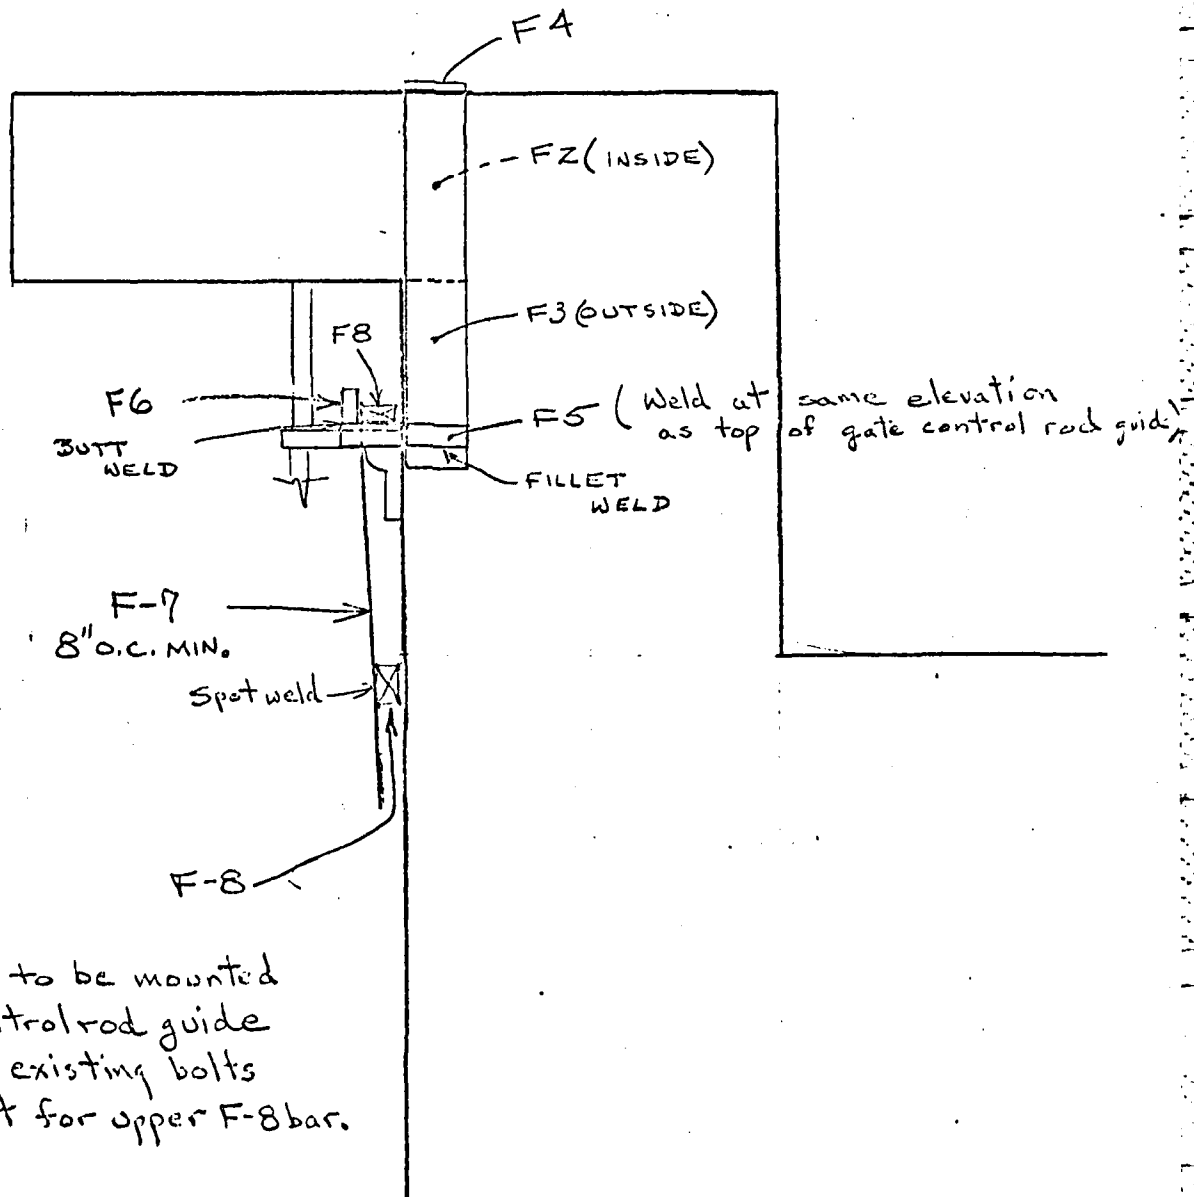 F4
F2 (INSIDE)
F3 (OUTSIDE)
F8
F6
F5 ( Weld at same elevation
as top of gate control rod guide)
BUTT
WELD
FILLET
WELD
F-7
8" O.C. MIN.
Spot weld
F-8
to be mounted
rod guide
existing bolts
for upper F-8 bar.